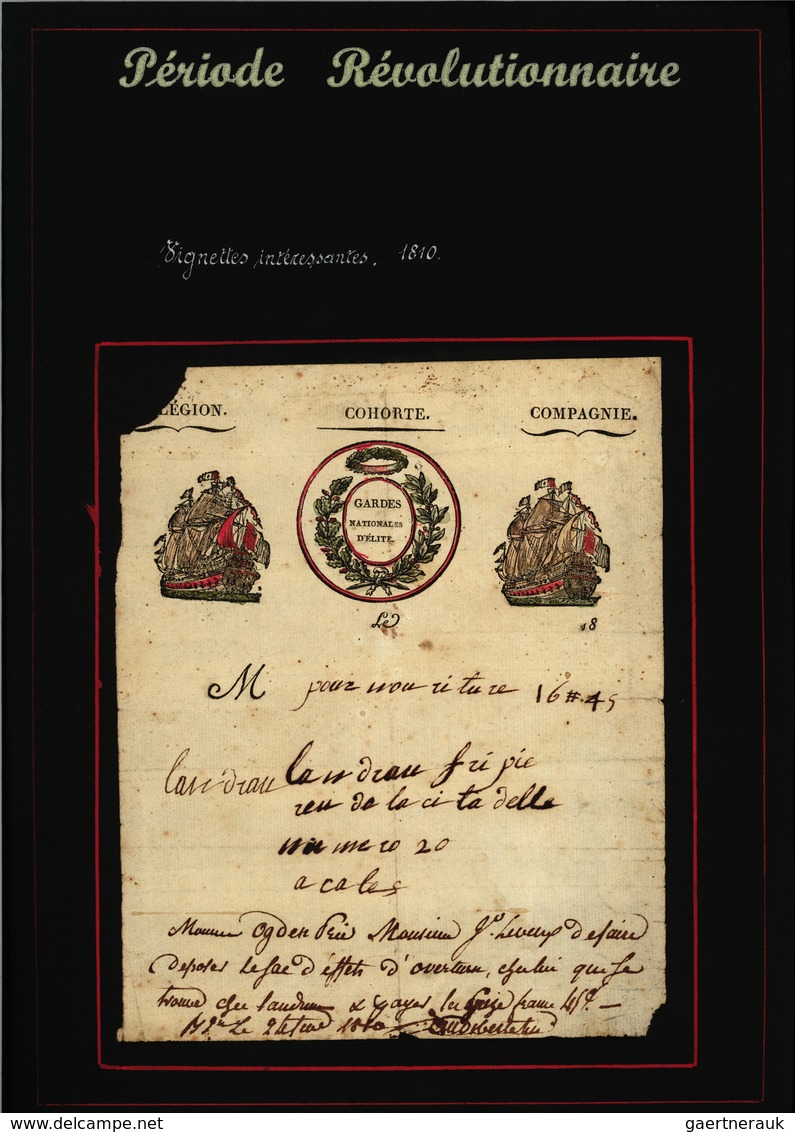 Période Révolutionnaire
Vignettes intéressantes. 1810.
LÉGION. COHORTE. COMPAGNIE.
GARDES
NATIONALES
D'ÉLITE.
Le 18
M pour nouriture 16 #. 45
landrau landrau fripie
reu de la citadelle
numero 20
a cales
Ogden Prie Monsieur de faire
deposer le sac d'effets d'overture, chez lui qui se
trouve chez landrau & payer les seize franc 45
Le
delcampe.net gaertnerauk